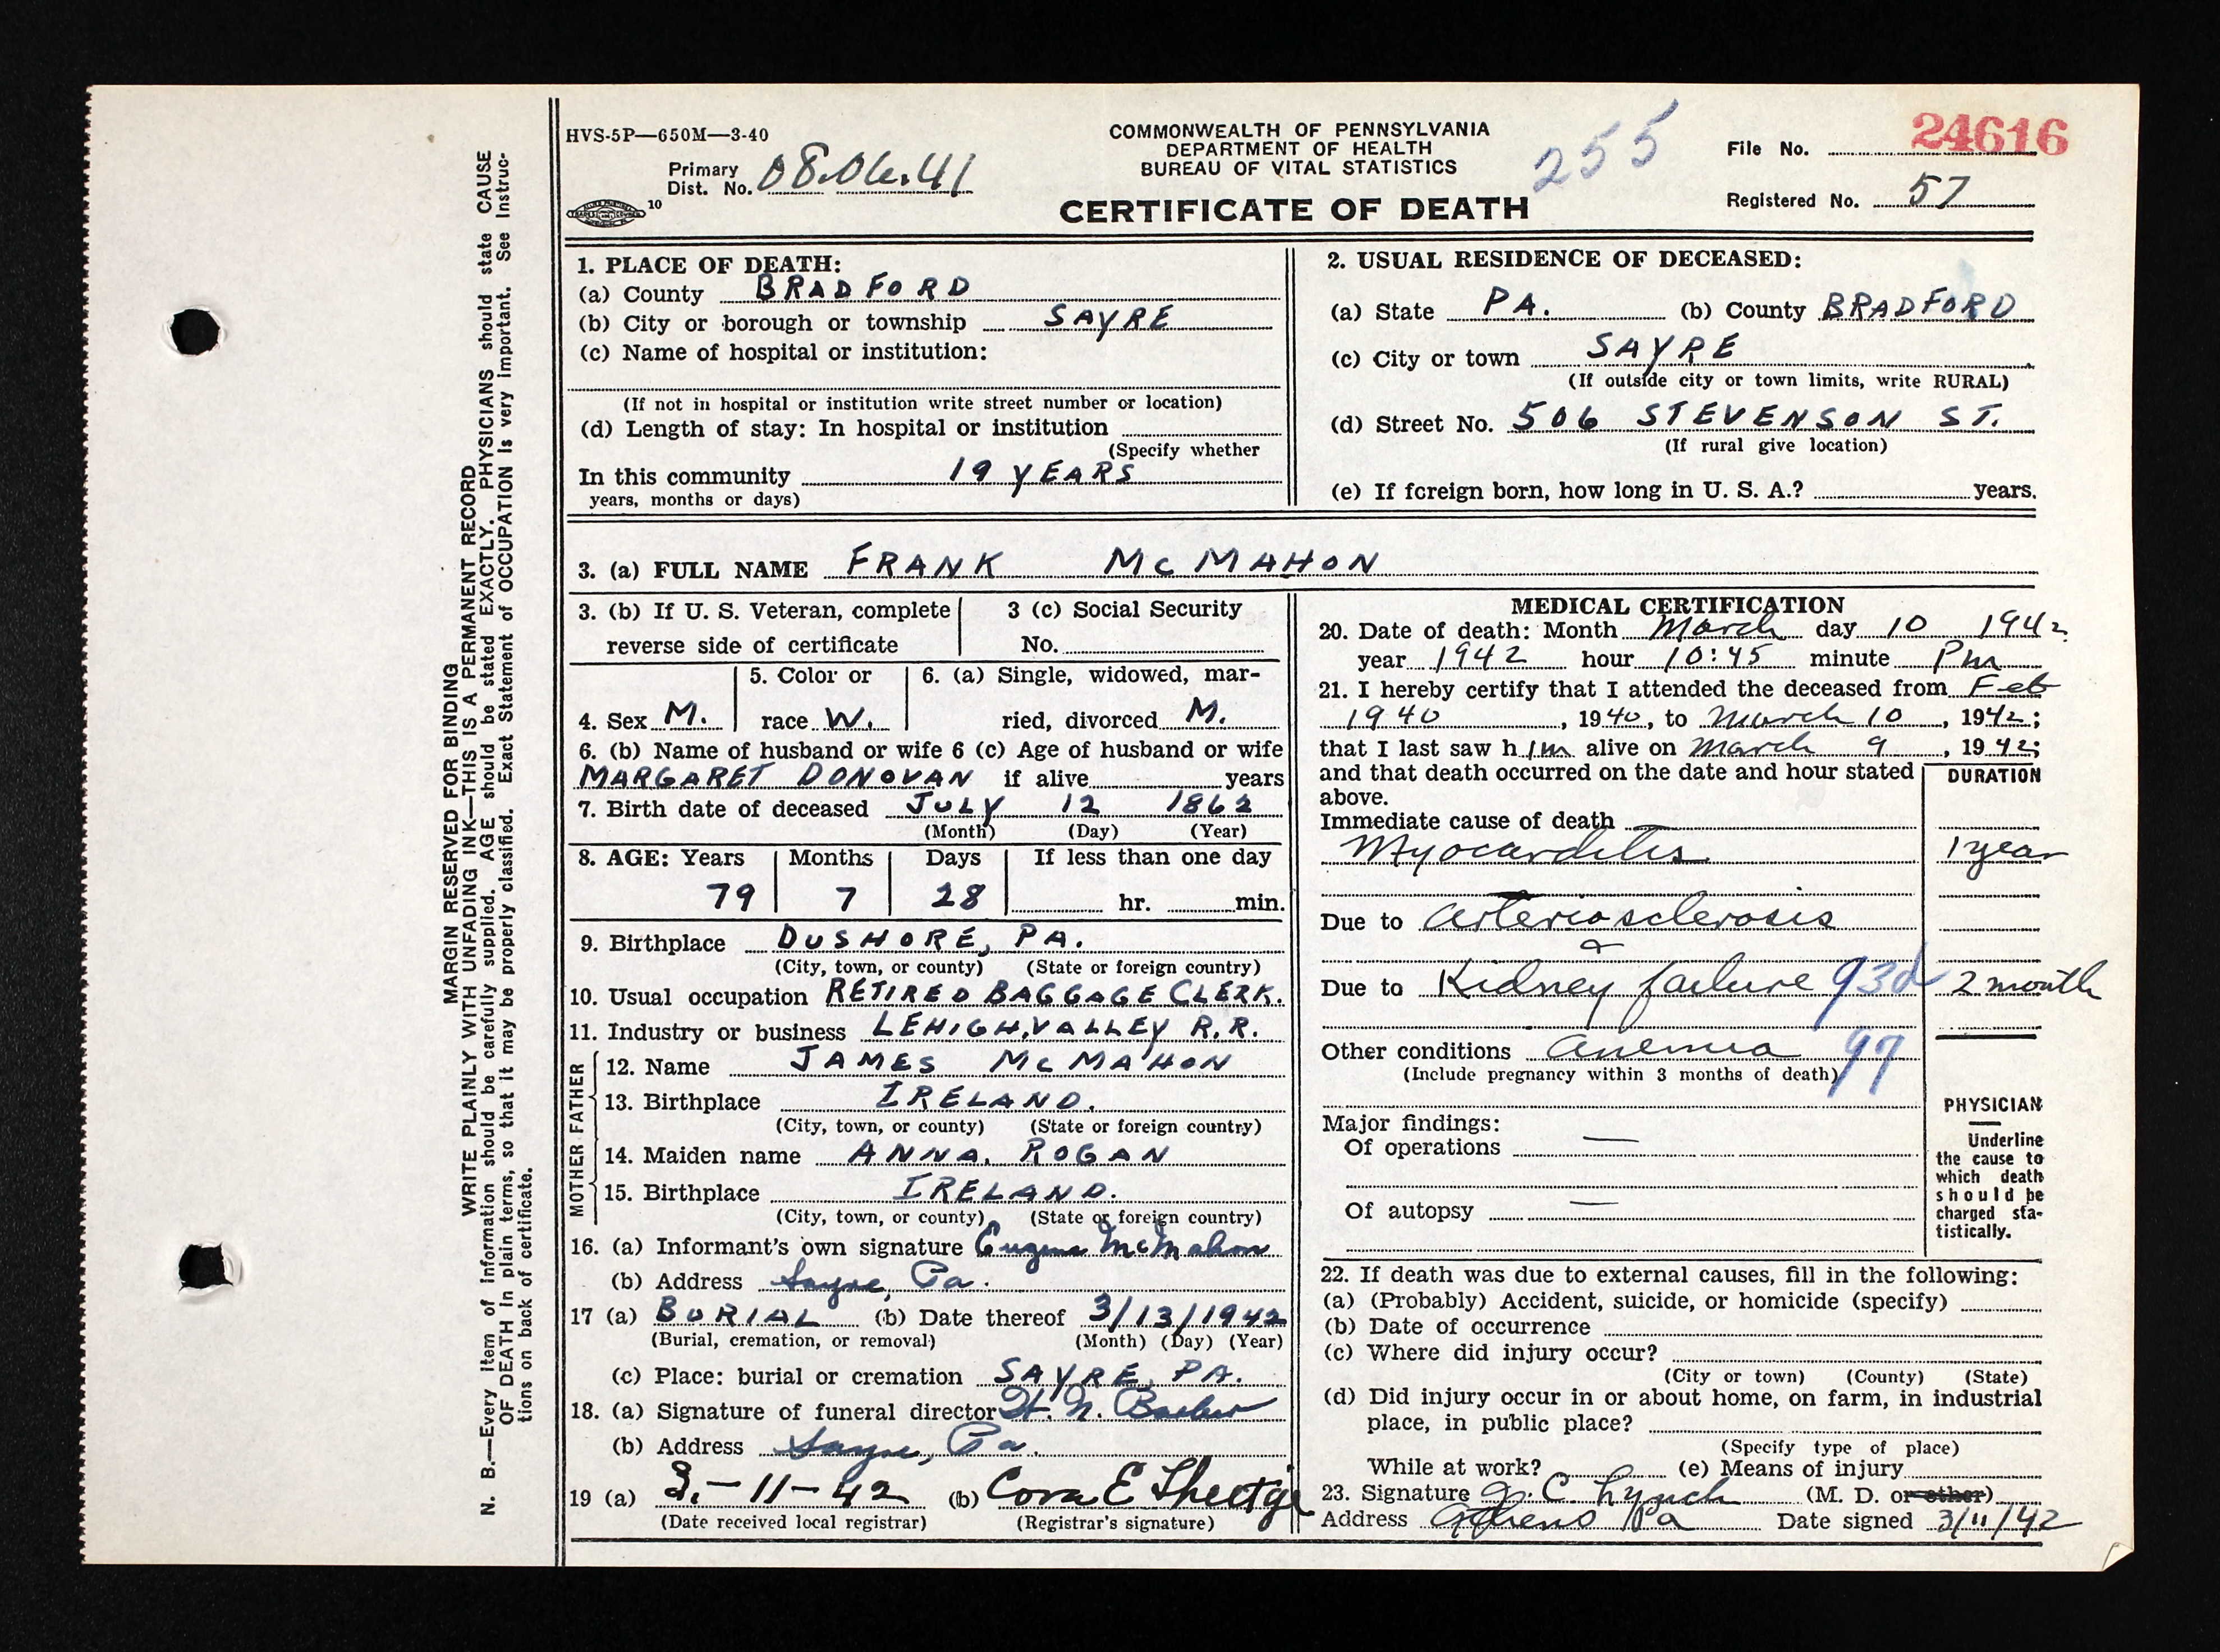 HVS-5P—650M—3-40
Primary
Dist. No. 08.06.41
10
COMMONWEALTH OF PENNSYLVANIA
DEPARTMENT OF HEALTH
BUREAU OF VITAL STATISTICS
CERTIFICATE OF DEATH
255
File No. 24616
Registered No. 57
MARGIN RESERVED FOR BINDING
WRITE PLAINLY WITH UNFADING INK—THIS IS A PERMANENT RECORD
N. B.—Every item of information should be carefully supplied. AGE should be stated EXACTLY. PHYSICIANS should state CAUSE
OF DEATH in plain terms, so that it may be properly classified. Exact Statement of OCCUPATION is very important. See Instruc-
tions on back of certificate.
1. PLACE OF DEATH:
(a) County BRADFORD
(b) City or borough or township SAYRE
(c) Name of hospital or institution:
(If not in hospital or institution write street number or location)
(d) Length of stay: In hospital or institution
(Specify whether
In this community 19 YEARS
years, months or days)
2. USUAL RESIDENCE OF DECEASED:
(a) State PA. (b) County BRADFORD
(c) City or town SAYRE
(If outside city or town limits, write RURAL)
(d) Street No. 506 STEVENSON ST.
(If rural give location)
(e) If foreign born, how long in U. S. A.? years.
3. (a) FULL NAME FRANK McMAHON
3. (b) If U. S. Veteran, complete
reverse side of certificate
3 (c) Social Security
No.
4. Sex M.
5. Color or
race W.
6. (a) Single, widowed, mar-
ried, divorced M.
6. (b) Name of husband or wife 6 (c) Age of husband or wife
MARGARET DONOVAN if alive years
7. Birth date of deceased JULY 12 1862
(Month) (Day) (Year)
8. AGE: Years Months Days If less than one day
79 7 28 hr. min.
9. Birthplace DUSHORE, PA.
(City, town, or county) (State or foreign country)
10. Usual occupation RETIRED BAGGAGE CLERK.
11. Industry or business LEHIGH VALLEY R.R.
FATHER
12. Name JAMES McMAHON
13. Birthplace IRELAND.
(City, town, or county) (State or foreign country)
MOTHER
14. Maiden name ANNA. ROGAN
15. Birthplace IRELAND.
(City, town, or county) (State or foreign country)
16. (a) Informant's own signature Eugene McMahon
(b) Address Sayre, Pa.
17 (a) BURIAL (b) Date thereof 3/13/1942
(Burial, cremation, or removal) (Month) (Day) (Year)
(c) Place: burial or cremation SAYRE, PA.
18. (a) Signature of funeral director
(b) Address Sayre, Pa.
19 (a) 3.-11-42 (b) Cora E
(Date received local registrar) (Registrar's signature)
MEDICAL CERTIFICATION
20. Date of death: Month March day 10 1942
year 1942 hour 10:45 minute Pm
21. I hereby certify that I attended the deceased from Feb
1940, 1940, to March 10, 1942;
that I last saw him alive on March 9, 1942;
and that death occurred on the date and hour stated
above.
DURATION
Immediate cause of death
Myocarditis 1 year
Due to Arteriosclerosis
&
Due to Kidney failure 93d 2 month
Other conditions anemia 97
(Include pregnancy within 3 months of death)
Major findings:
Of operations —
Of autopsy —
PHYSICIAN
Underline
the cause to
which death
should be
charged sta-
tistically.
22. If death was due to external causes, fill in the following:
(a) (Probably) Accident, suicide, or homicide (specify)
(b) Date of occurrence
(c) Where did injury occur?
(City or town) (County) (State)
(d) Did injury occur in or about home, on farm, in industrial
place, in public place?
(Specify type of place)
While at work? (e) Means of injury
23. Signature C. Lynch (M. D. or other)
Address Athens Pa Date signed 3/11/42